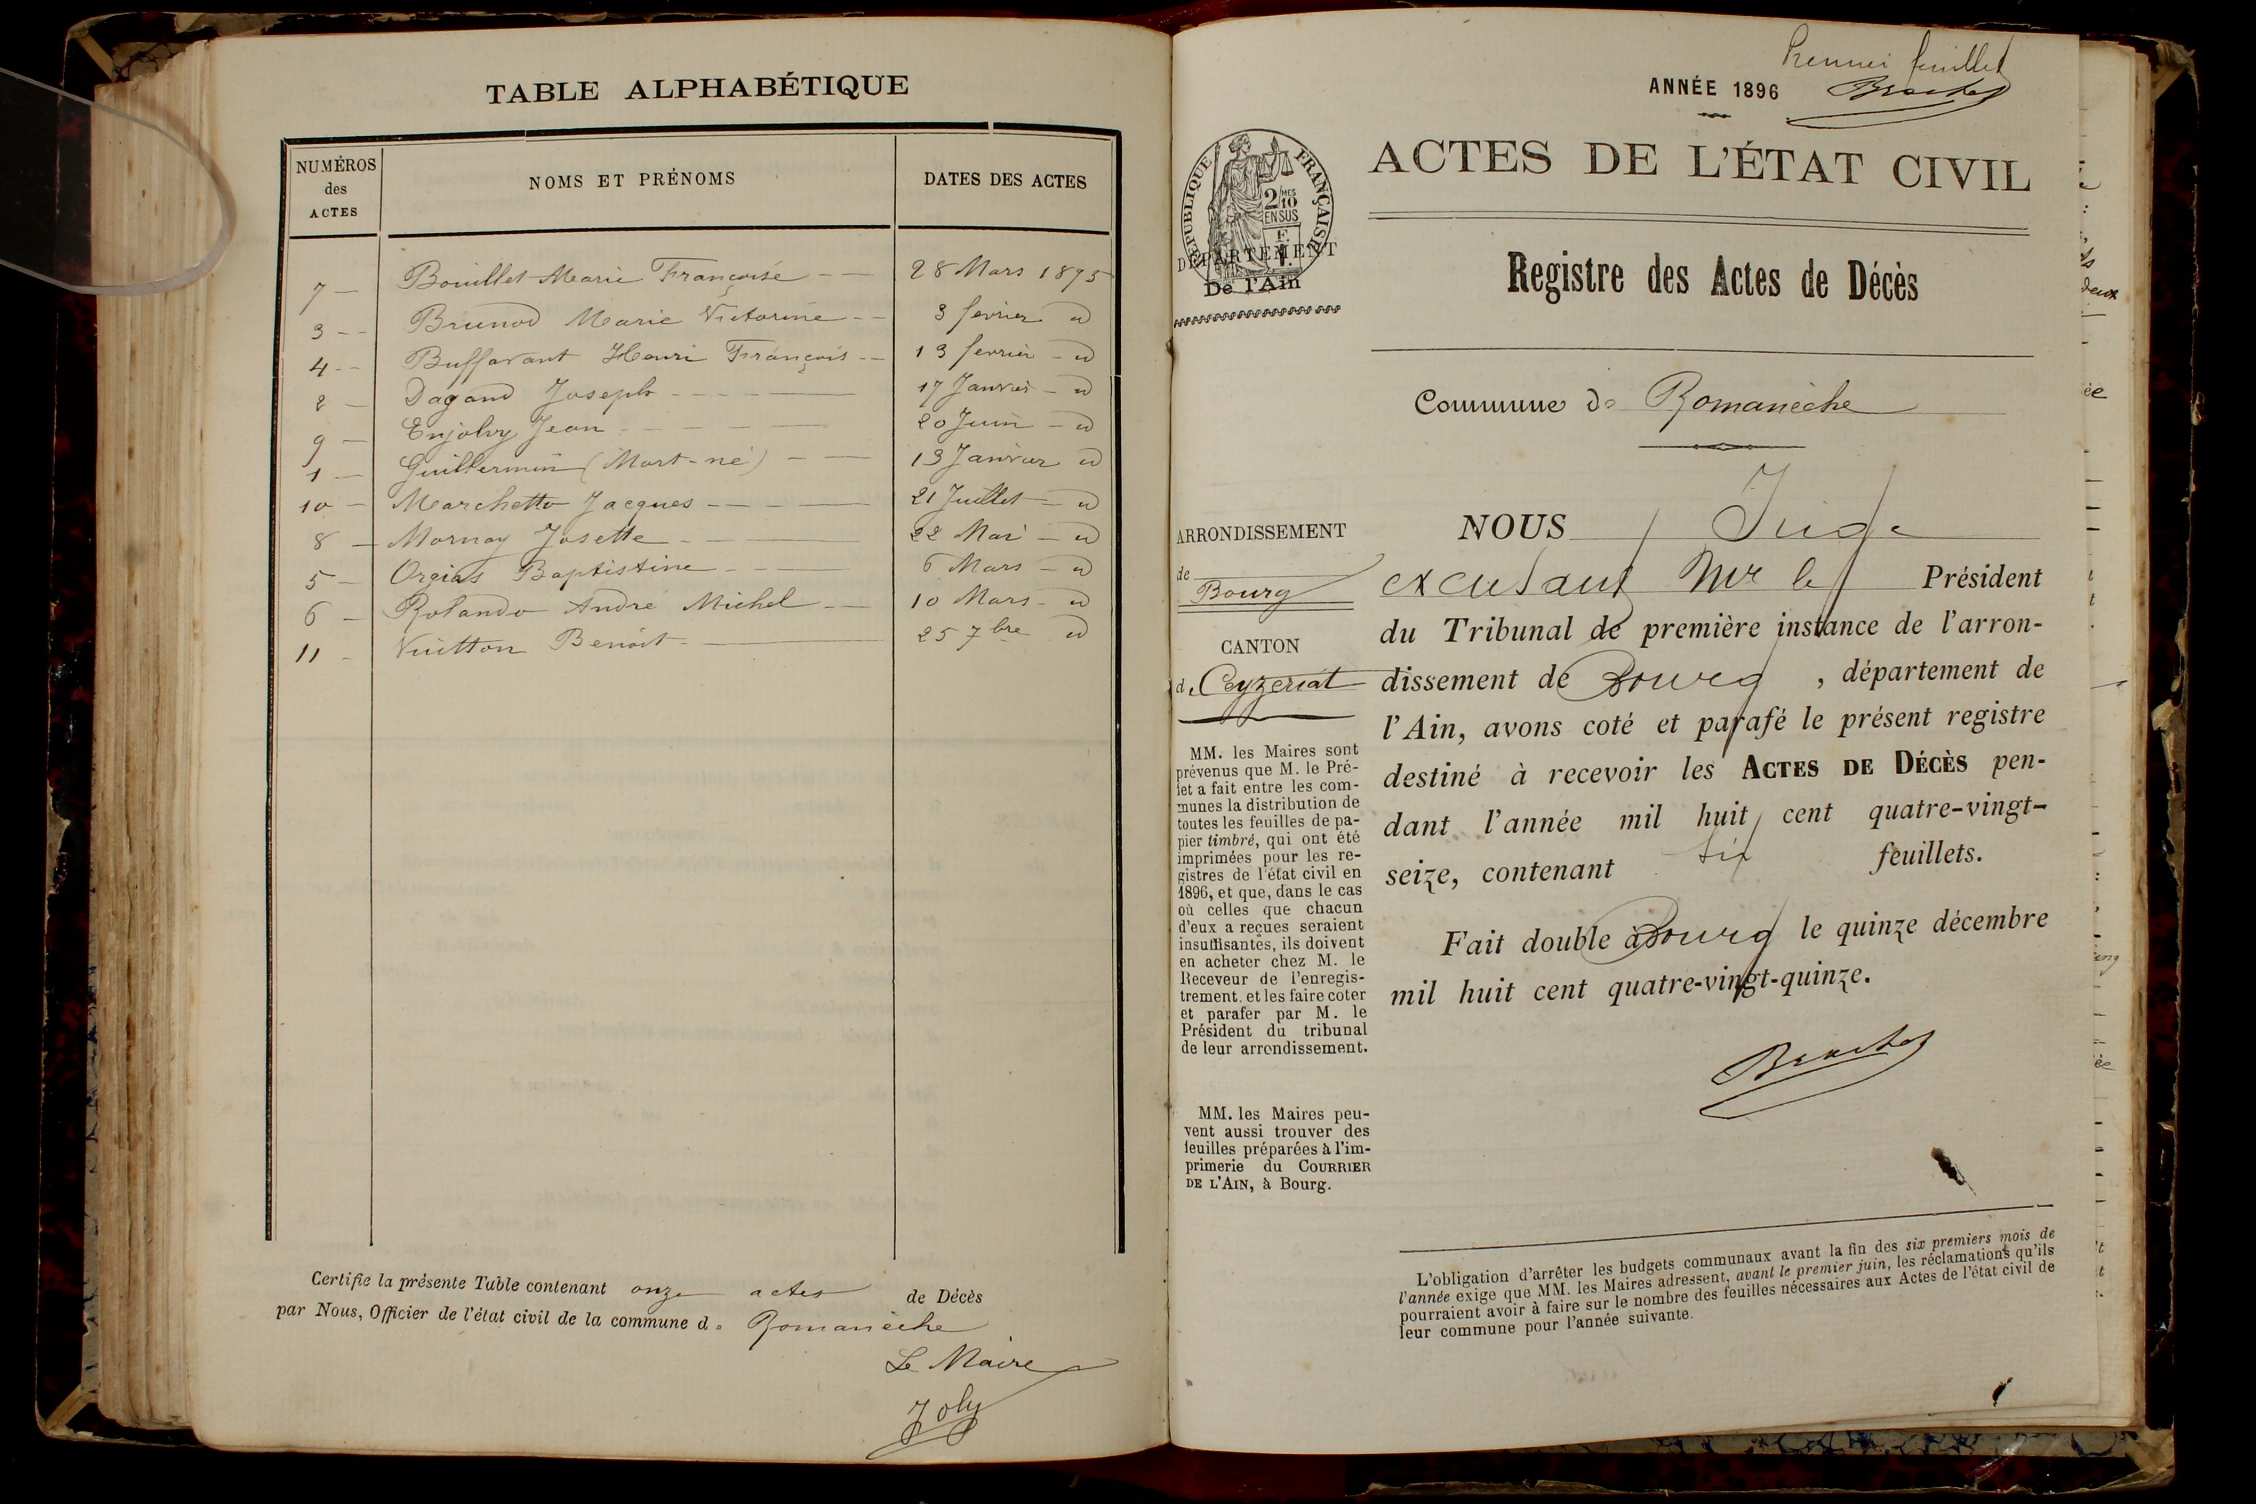 TABLE ALPHABÉTIQUE
NUMÉROS
des
ACTES
NOMS ET PRÉNOMS
DATES DES ACTES
7 — Bouillet Marie Françoise — 28 Mars 1895
3 — Brunod Marie Victorine — 3 fevrier id
4 — Buffavant Henri François — 13 fevrier — id
2 — Dagand Joseph — 17 Janvier — id
9 — Enjolvy Jean — 20 Juin — id
1 — Guillermin (Mort-né) — 13 Janvier id
10 — Marchetto Jacques — 21 Juillet — id
8 — Mornay Josette — 22 Mai — id
5 — Orgias Baptistine — 6 Mars — id
6 — Rolando André Michel — 10 Mars — id
11 — Vuitton Benoit — 25 7bre id
Certifie la présente Table contenant onze actes de Décès
par Nous, Officier de l'état civil de la commune de Romanèche
Le Maire
Joly
Premier feuillet
ANNÉE 1896
RÉPUBLIQUE FRANÇAISE
2/10 MES
EN SUS
DÉPARTEMENT
De l'Ain
ACTES DE L'ÉTAT CIVIL
Registre des Actes de Décès
Commune de Romanèche
ARRONDISSEMENT
de
Bourg
CANTON
de Ceyzeriat
MM. les Maires sont
prévenus que M. le Pré-
fet a fait entre les com-
munes la distribution de
toutes les feuilles de pa-
pier timbré, qui ont été
imprimées pour les re-
gistres de l'état civil en
1896, et que, dans le cas
où celles que chacun
d'eux a reçues seraient
insuffisantes, ils doivent
en acheter chez M. le
Receveur de l'enregis-
trement, et les faire coter
et parafer par M. le
Président du tribunal
de leur arrondissement.
MM. les Maires peu-
vent aussi trouver des
feuilles préparées à l'im-
primerie du COURRIER
DE L'AIN, à Bourg.
NOUS Juge
excusant Mr le Président
du Tribunal de première instance de l'arron-
dissement de Bourg, département de
l'Ain, avons coté et parafé le présent registre
destiné à recevoir les ACTES DE DÉCÈS pen-
dant l'année mil huit cent quatre-vingt-
seize, contenant six feuillets.
Fait double à Bourg le quinze décembre
mil huit cent quatre-vingt-quinze.
L'obligation d'arrêter les budgets communaux avant la fin des six premiers mois de
l'année exige que MM. les Maires adressent, avant le premier juin, les réclamations qu'ils
pourraient avoir à faire sur le nombre des feuilles nécessaires aux Actes de l'état civil de
leur commune pour l'année suivante.